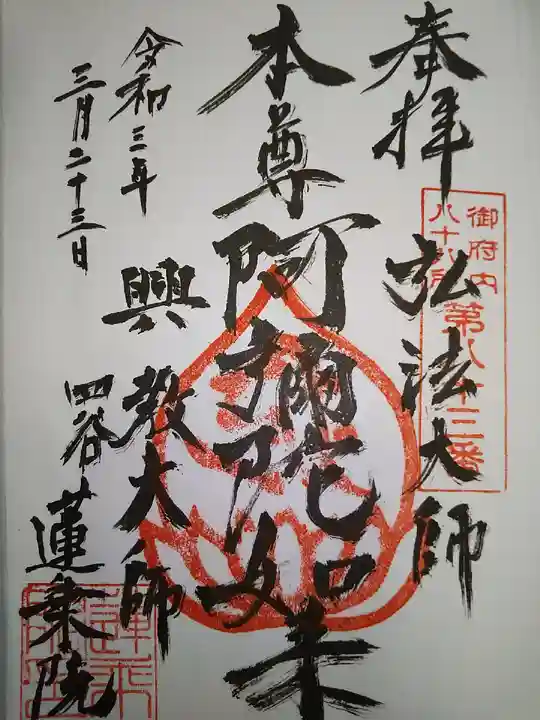 奉拝
弘法大師
御府内
八十八所
第八十三番
本尊阿彌陀如来
興教大師
令和三年
三月二十三日
四谷
蓮乗院